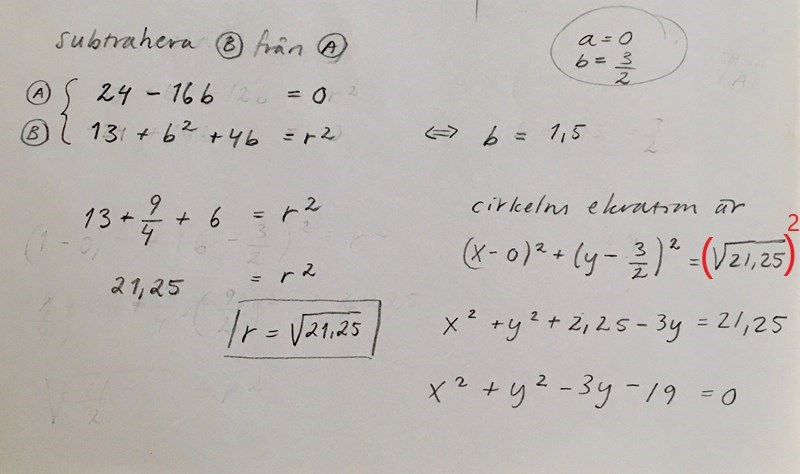 subtrahera Ⓑ från Ⓐ
a = 0
b = 3/2
Ⓐ 24 - 16b = 0
Ⓑ 13 + b² + 4b = r²
⇔ b = 1,5
13 + 9/4 + 6 = r²
21,25 = r²
r = √21,25
cirkelns ekvation är
(x - 0)² + (y - 3/2)² = (√21,25)²
x² + y² + 2,25 - 3y = 21,25
x² + y² - 3y - 19 = 0